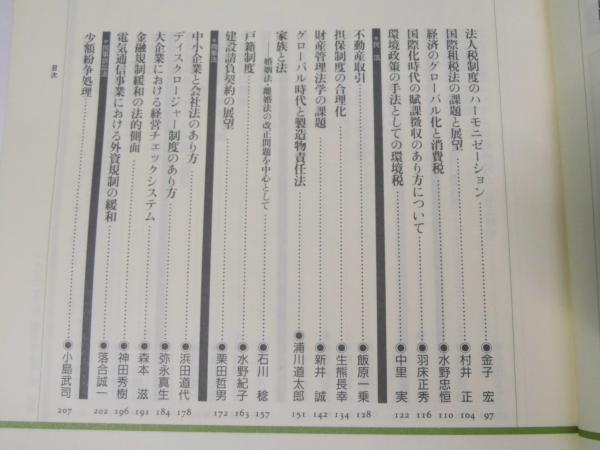 法人税制度のハーモニゼーション……●金子 宏 97
国際租税法の課題と展望……●村井 正 104
経済のグローバル化と消費税……●水野忠恒 110
国際化時代の賦課徴収のあり方について……●羽床正秀 116
環境政策の手法としての環境税……●中里 実 122
●民 法
不動産取引……●飯原一乗 128
担保制度の合理化……●生熊長幸 134
財産管理法学の課題……●新井 誠 142
グローバル時代と製造物責任法……●浦川道太郎 151
家族と法
——婚姻法・離婚法の改正問題を中心として……●石川 稔 157
戸籍制度……●水野紀子 163
建設請負契約の展望……●栗田哲男 172
●商事法
中小企業と会社法のあり方……●浜田道代 178
ディスクロージャー制度のあり方……●弥永真生 184
大企業における経営チェックシステム……●森本 滋 191
金融規制緩和の法的側面……●神田秀樹 196
電気通信事業における外資規制の緩和……●落合誠一 202
少額紛争処理……●小島武司 207
目次